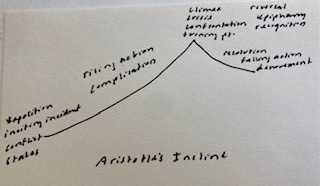 climax
crisis
confrontation
turning pt.
reversal
epiphany
recognition
rising action
complication
resolution
falling action
denouement
exposition
inciting incident
conflict
stakes
Aristotle's Incline